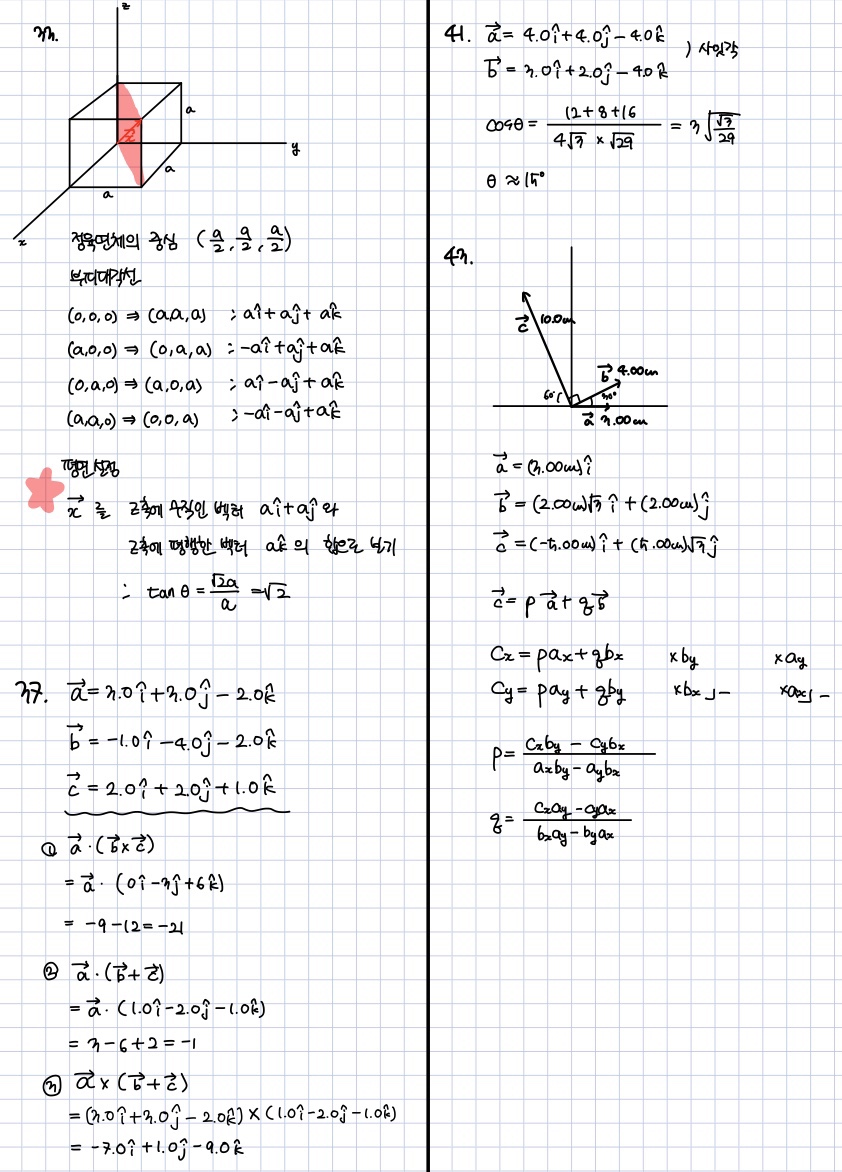 33.
z
a
y
a
a
x
정육면체의 중심 (a/2, a/2, a/2)
부피대각선
(0,0,0) ⇒ (a,a,a) ; aî+aĵ+ak̂
(a,0,0) ⇒ (0,a,a) ; -aî+aĵ+ak̂
(0,a,0) ⇒ (a,0,a) ; aî-aĵ+ak̂
(a,a,0) ⇒ (0,0,a) ; -aî-aĵ+ak̂
평면 설정
x⃗ 를 z축에 수직인 벡터 aî+aĵ 와
z축에 평행한 벡터 ak̂ 의 합으로 보기
∴ tan θ = √2a/a = √2
37. a⃗ = 3.0î+3.0ĵ-2.0k̂
b⃗ = -1.0î-4.0ĵ-2.0k̂
c⃗ = 2.0î+2.0ĵ+1.0k̂
① a⃗·(b⃗×c⃗)
= a⃗·(0î-3ĵ+6k̂)
= -9-12=-21
② a⃗·(b⃗+c⃗)
= a⃗·(1.0î-2.0ĵ-1.0k̂)
= 3-6+2=-1
③ a⃗×(b⃗+c⃗)
= (3.0î+3.0ĵ-2.0k̂)×(1.0î-2.0ĵ-1.0k̂)
= -7.0î+1.0ĵ-9.0k̂
41. a⃗ = 4.0î+4.0ĵ-4.0k̂
b⃗ = 3.0î+2.0ĵ-4.0k̂
) 사잇각
cosθ = (12+8+16)/(4√3×√29) = 3√(√3/29)
θ ≈ 15°
43.
c⃗ 10.0cm
b⃗ 4.00cm
60° 30°
a⃗ 3.00cm
a⃗ = (3.00cm)î
b⃗ = (2.00cm)√3 î+(2.00cm)ĵ
c⃗ = (-5.00cm)î+(5.00cm)√3 ĵ
c⃗ = p a⃗ + q b⃗
Cx = pax+qbx ×by ×ay
Cy = pay+qby ×bx - ×ax -
p = (cxby - cybx)/(axby - aybx)
q = (cxay - cyax)/(bxay - byax)